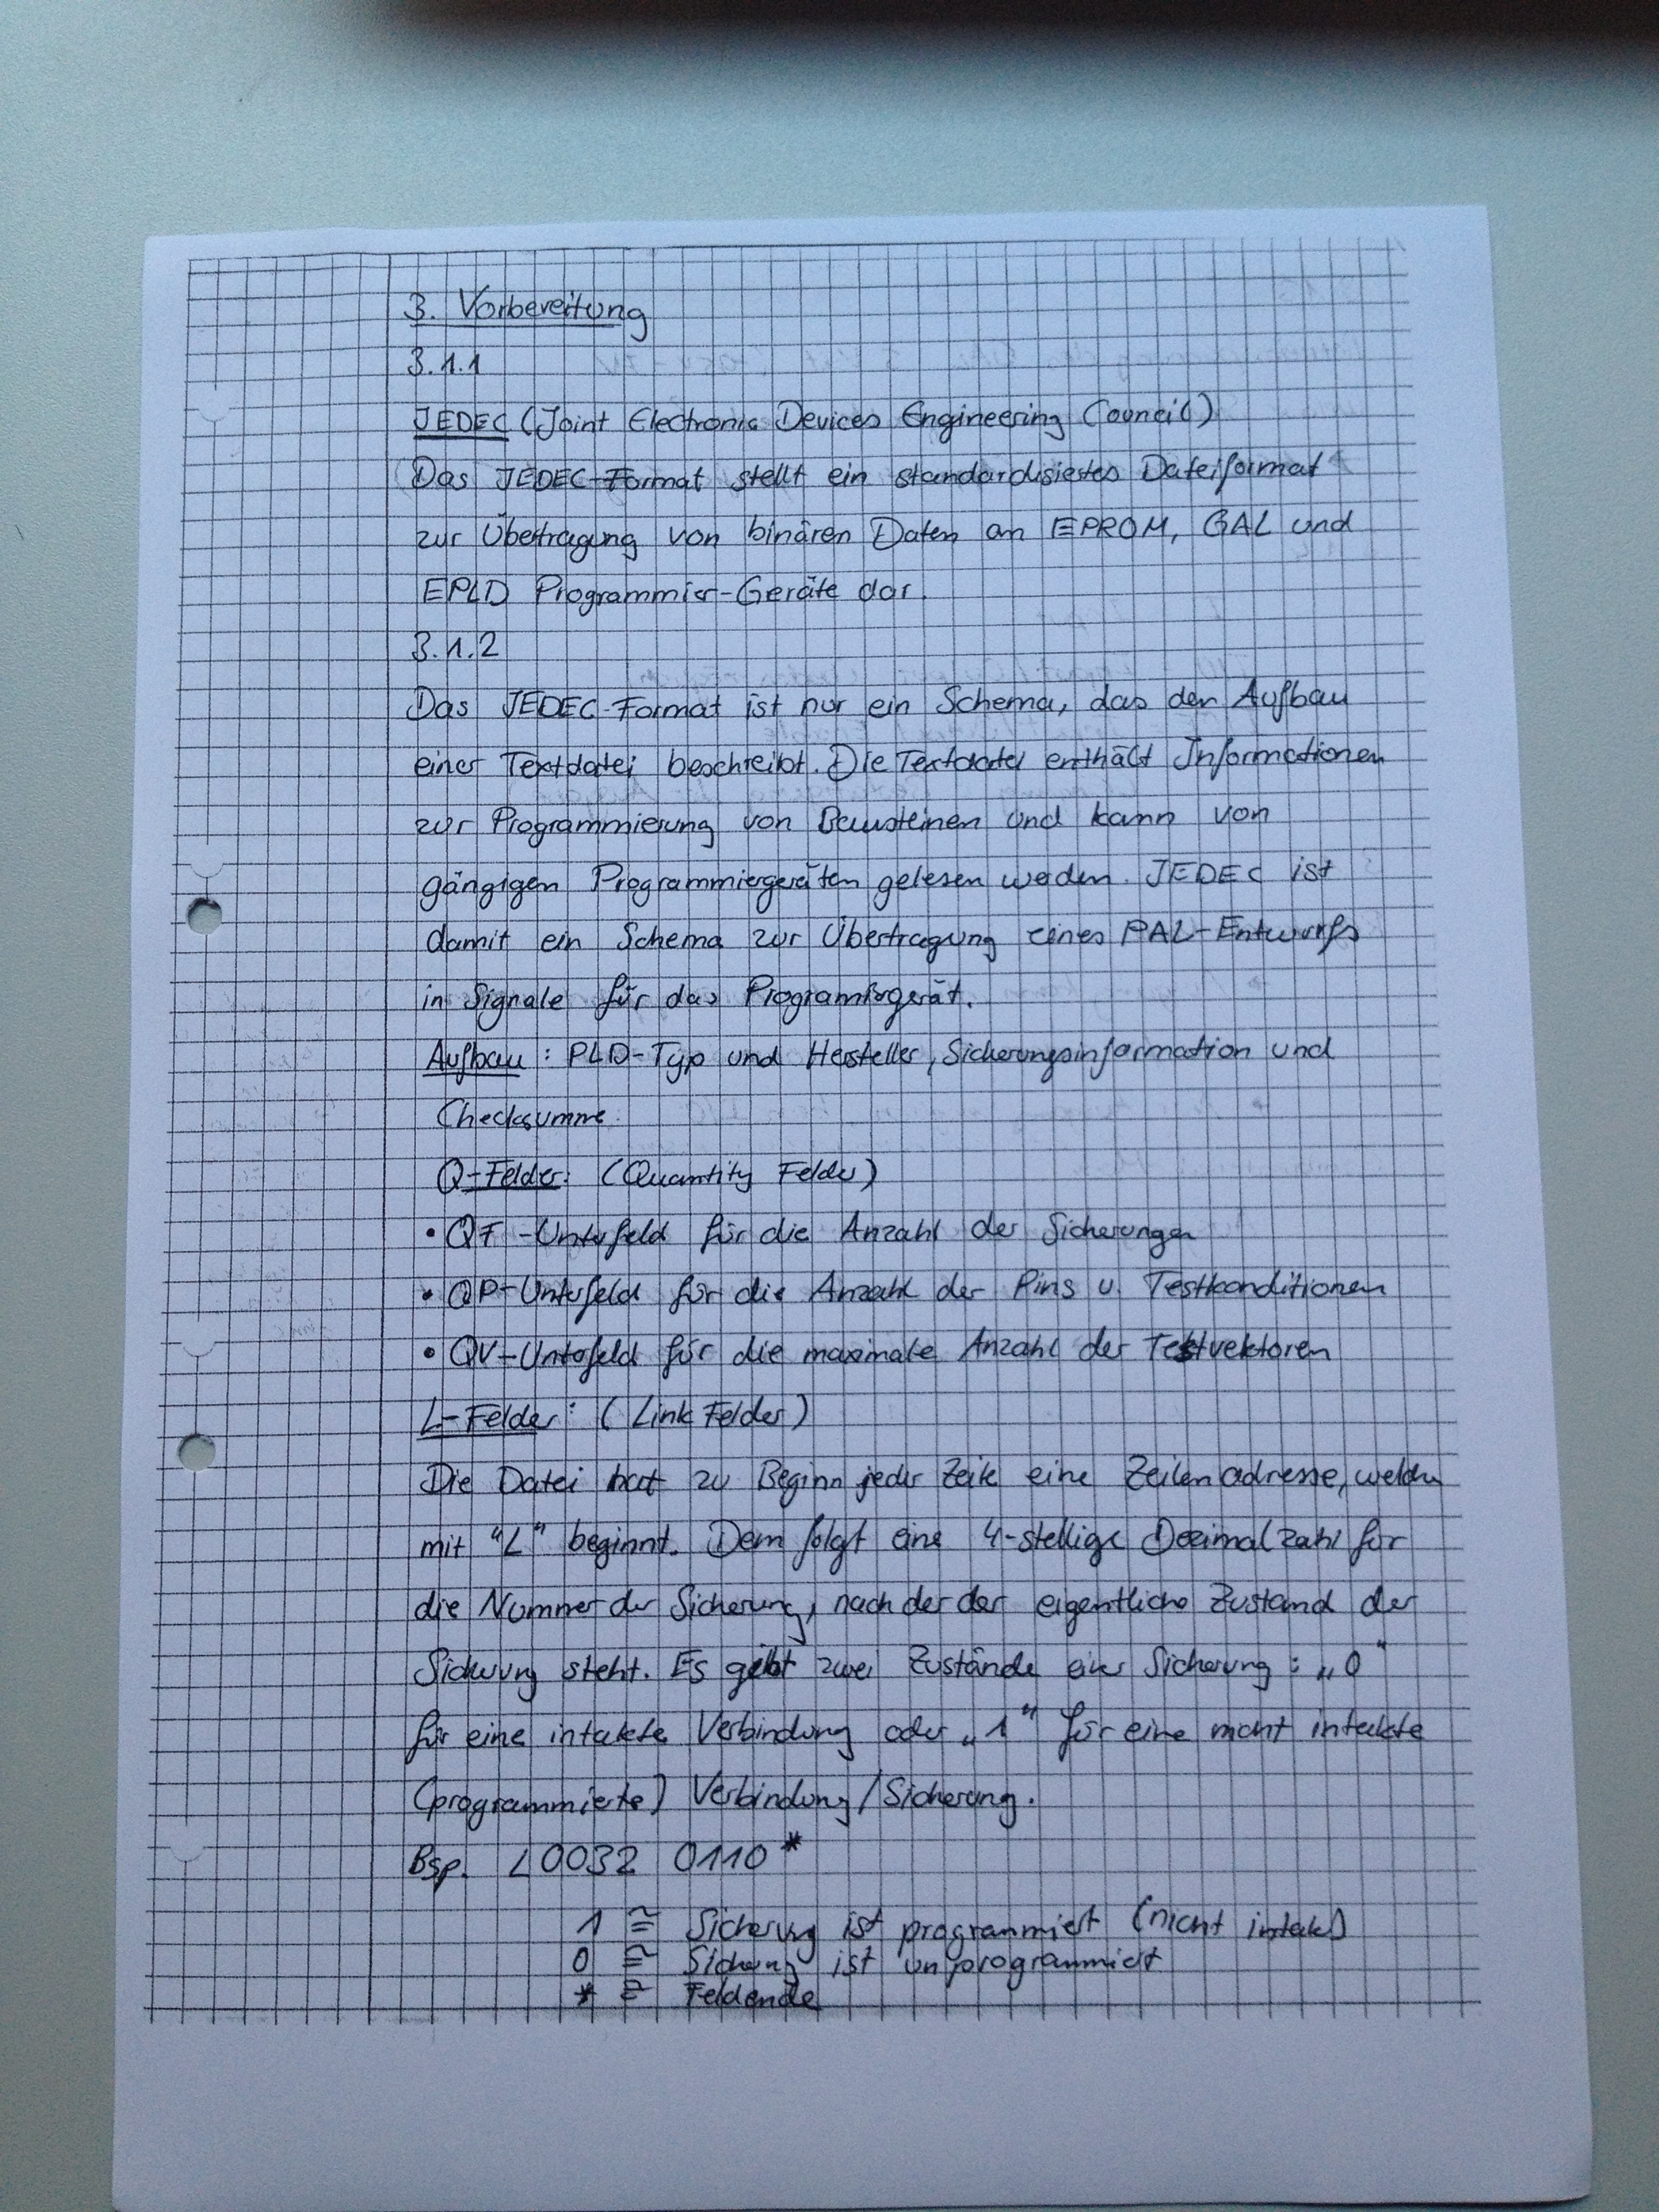 3. Vorbereitung
3.1.1
JEDEC (Joint Electronic Devices Engineering Council)
Das JEDEC-Format stellt ein standardisiertes Dateiformat
zur Übertragung von binären Daten an EPROM, GAL und
EPLD Programmier-Geräte dar.
3.1.2
Das JEDEC-Format ist nur ein Schema, das den Aufbau
einer Textdatei beschreibt. Die Textdatei enthält Informationen
zur Programmierung von Bausteinen und kann von
gängigen Programmiergeräten gelesen werden. JEDEC ist
damit ein Schema zur Übertragung eines PAL-Entwurfs
in Signale für das Programiergerät.
Aufbau: PLD-Typ und Hersteller, Sicherungsinformation und
Checksumme.
Q-Felder: (Quantity Felder)
• QF-Unterfeld für die Anzahl der Sicherungen
• QP-Unterfeld für die Anzahl der Pins u. Testkonditionen
• QV-Unterfeld für die maximale Anzahl der Testvektoren
L-Felder: (Link Felder)
Die Datei hat zu Beginn jeder Zeile eine Zeilenadresse, welche
mit "L" beginnt. Dem folgt eine 4-stellige Dezimalzahl für
die Nummer der Sicherung, nach der der eigentliche Zustand der
Sicherung steht. Es gibt zwei Zustände einer Sicherung: „0"
für eine intakte Verbindung oder „1" für eine nicht intakte
(programmierte) Verbindung/Sicherung.
Bsp. L0032 0110*
1 ≅ Sicherung ist programmiert (nicht intakt)
0 ≅ Sicherung ist unprogrammiert
* ≅ Feldende